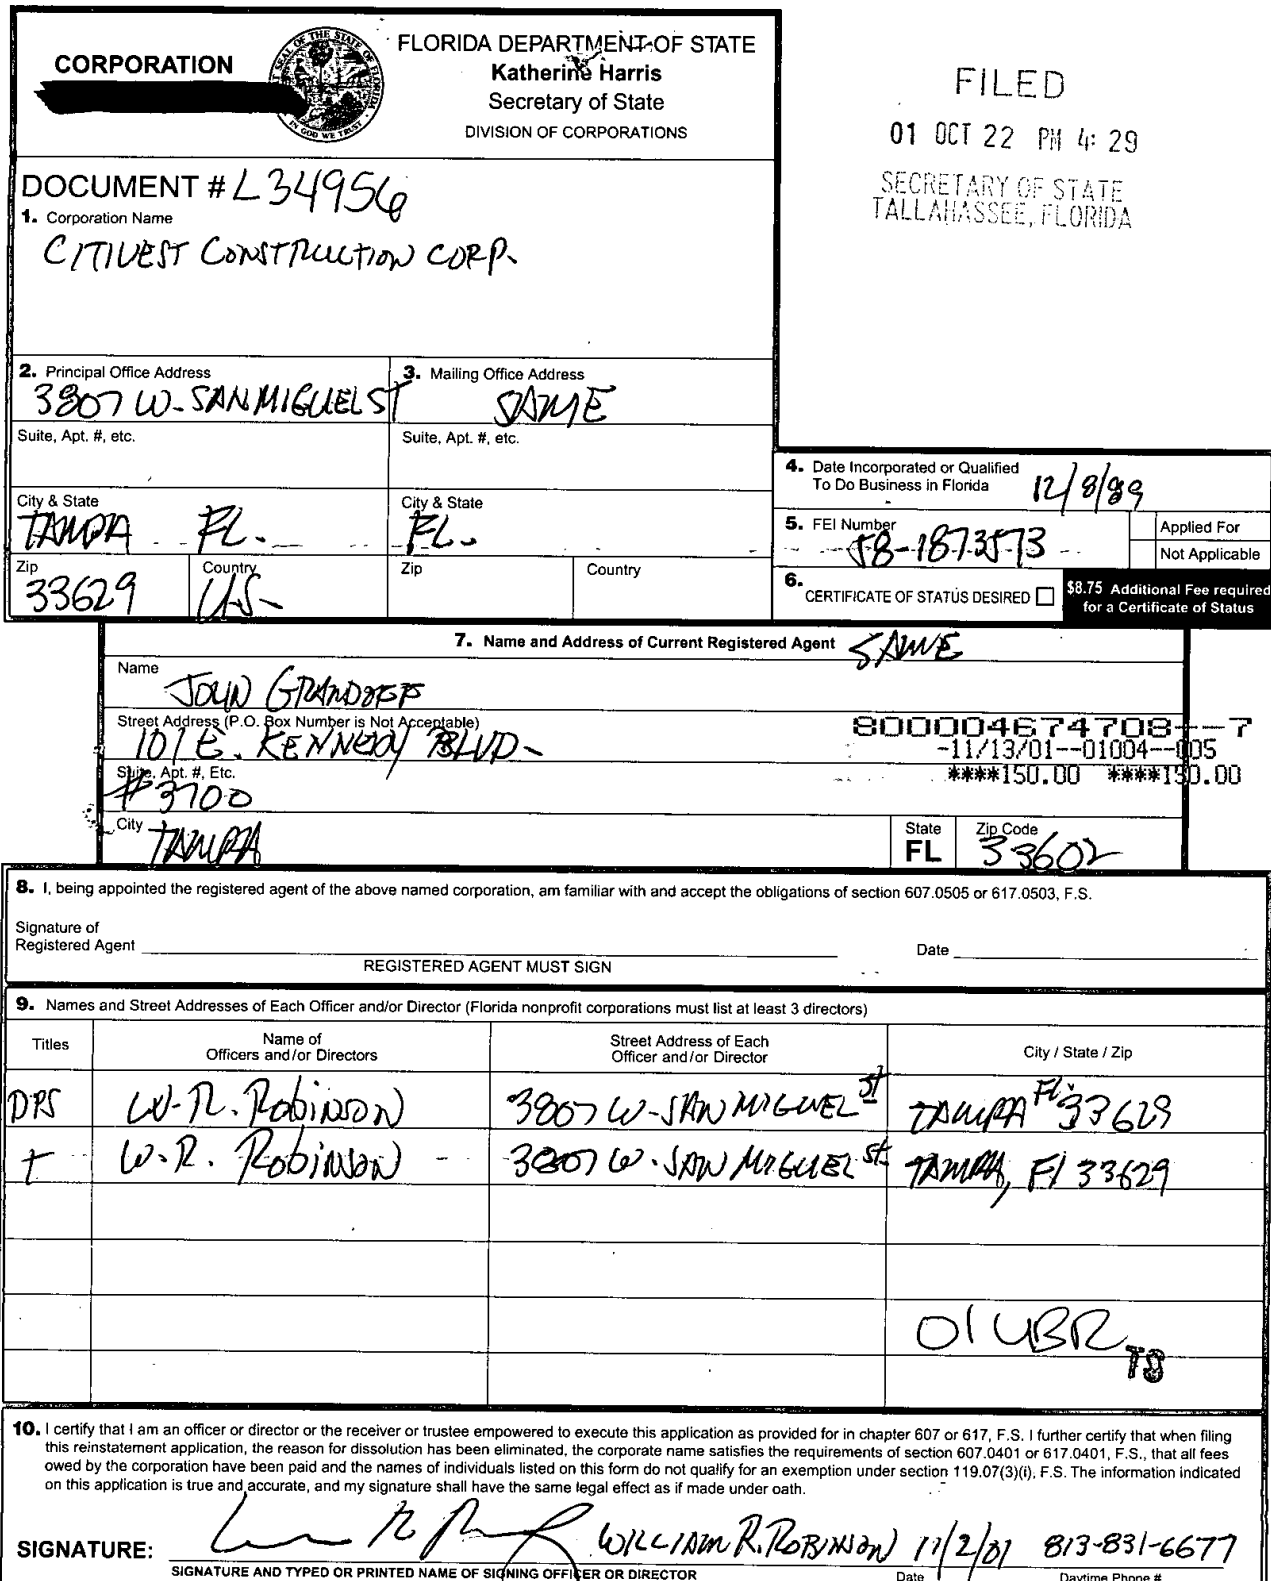 CORPORATION
FLORIDA DEPARTMENT OF STATE
Katherine Harris
Secretary of State
DIVISION OF CORPORATIONS
FILED
01 OCT 22 PM 4: 29
SECRETARY OF STATE
TALLAHASSEE, FLORIDA
DOCUMENT # L34956
1. Corporation Name
CITIVEST CONSTRUCTION CORP.
2. Principal Office Address
3807 W. SAN MIGUEL ST
3. Mailing Office Address
SAME
Suite, Apt. #, etc.
Suite, Apt. #, etc.
City & State
TAMPA FL.
City & State
FL.
Zip
33629
Country
U.S.
Zip
Country
4. Date Incorporated or Qualified
To Do Business in Florida 12/8/89
5. FEI Number
58-1873573
Applied For
Not Applicable
6. CERTIFICATE OF STATUS DESIRED
$8.75 Additional Fee required
for a Certificate of Status
7. Name and Address of Current Registered Agent SAME
Name
JOHN GRANDOFF
Street Address (P.O. Box Number is Not Acceptable)
101 E. KENNEDY BLVD.
800004674708--7
-11/13/01--01004--005
****150.00 ****150.00
Suite, Apt. #, Etc.
#3700
City
TAMPA
State
FL
Zip Code
33602
8. I, being appointed the registered agent of the above named corporation, am familiar with and accept the obligations of section 607.0505 or 617.0503, F.S.
Signature of
Registered Agent
Date
REGISTERED AGENT MUST SIGN
9. Names and Street Addresses of Each Officer and/or Director (Florida nonprofit corporations must list at least 3 directors)
Titles
Name of
Officers and/or Directors
Street Address of Each
Officer and/or Director
City / State / Zip
DPS W.R. Robinson 3807 W. SAN MIGUEL St TAMPA Fl 33629
T W.R. Robinson 3807 W. SAN MIGUEL St. TAMPA, Fl 33629
01 UBR
TS
10. I certify that I am an officer or director or the receiver or trustee empowered to execute this application as provided for in chapter 607 or 617, F.S. I further certify that when filing
this reinstatement application, the reason for dissolution has been eliminated, the corporate name satisfies the requirements of section 607.0401 or 617.0401, F.S., that all fees
owed by the corporation have been paid and the names of individuals listed on this form do not qualify for an exemption under section 119.07(3)(i), F.S. The information indicated
on this application is true and accurate, and my signature shall have the same legal effect as if made under oath.
SIGNATURE: WILLIAM R. ROBINSON 11/2/01 813-831-6677
SIGNATURE AND TYPED OR PRINTED NAME OF SIGNING OFFICER OR DIRECTOR
Date
Daytime Phone #